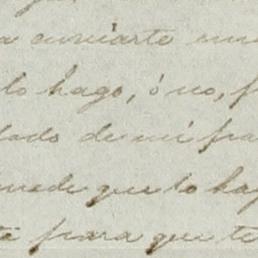 a enviarte una
lo hago, ó no, f
lado de mi fra
uede que lo hag
te para que te